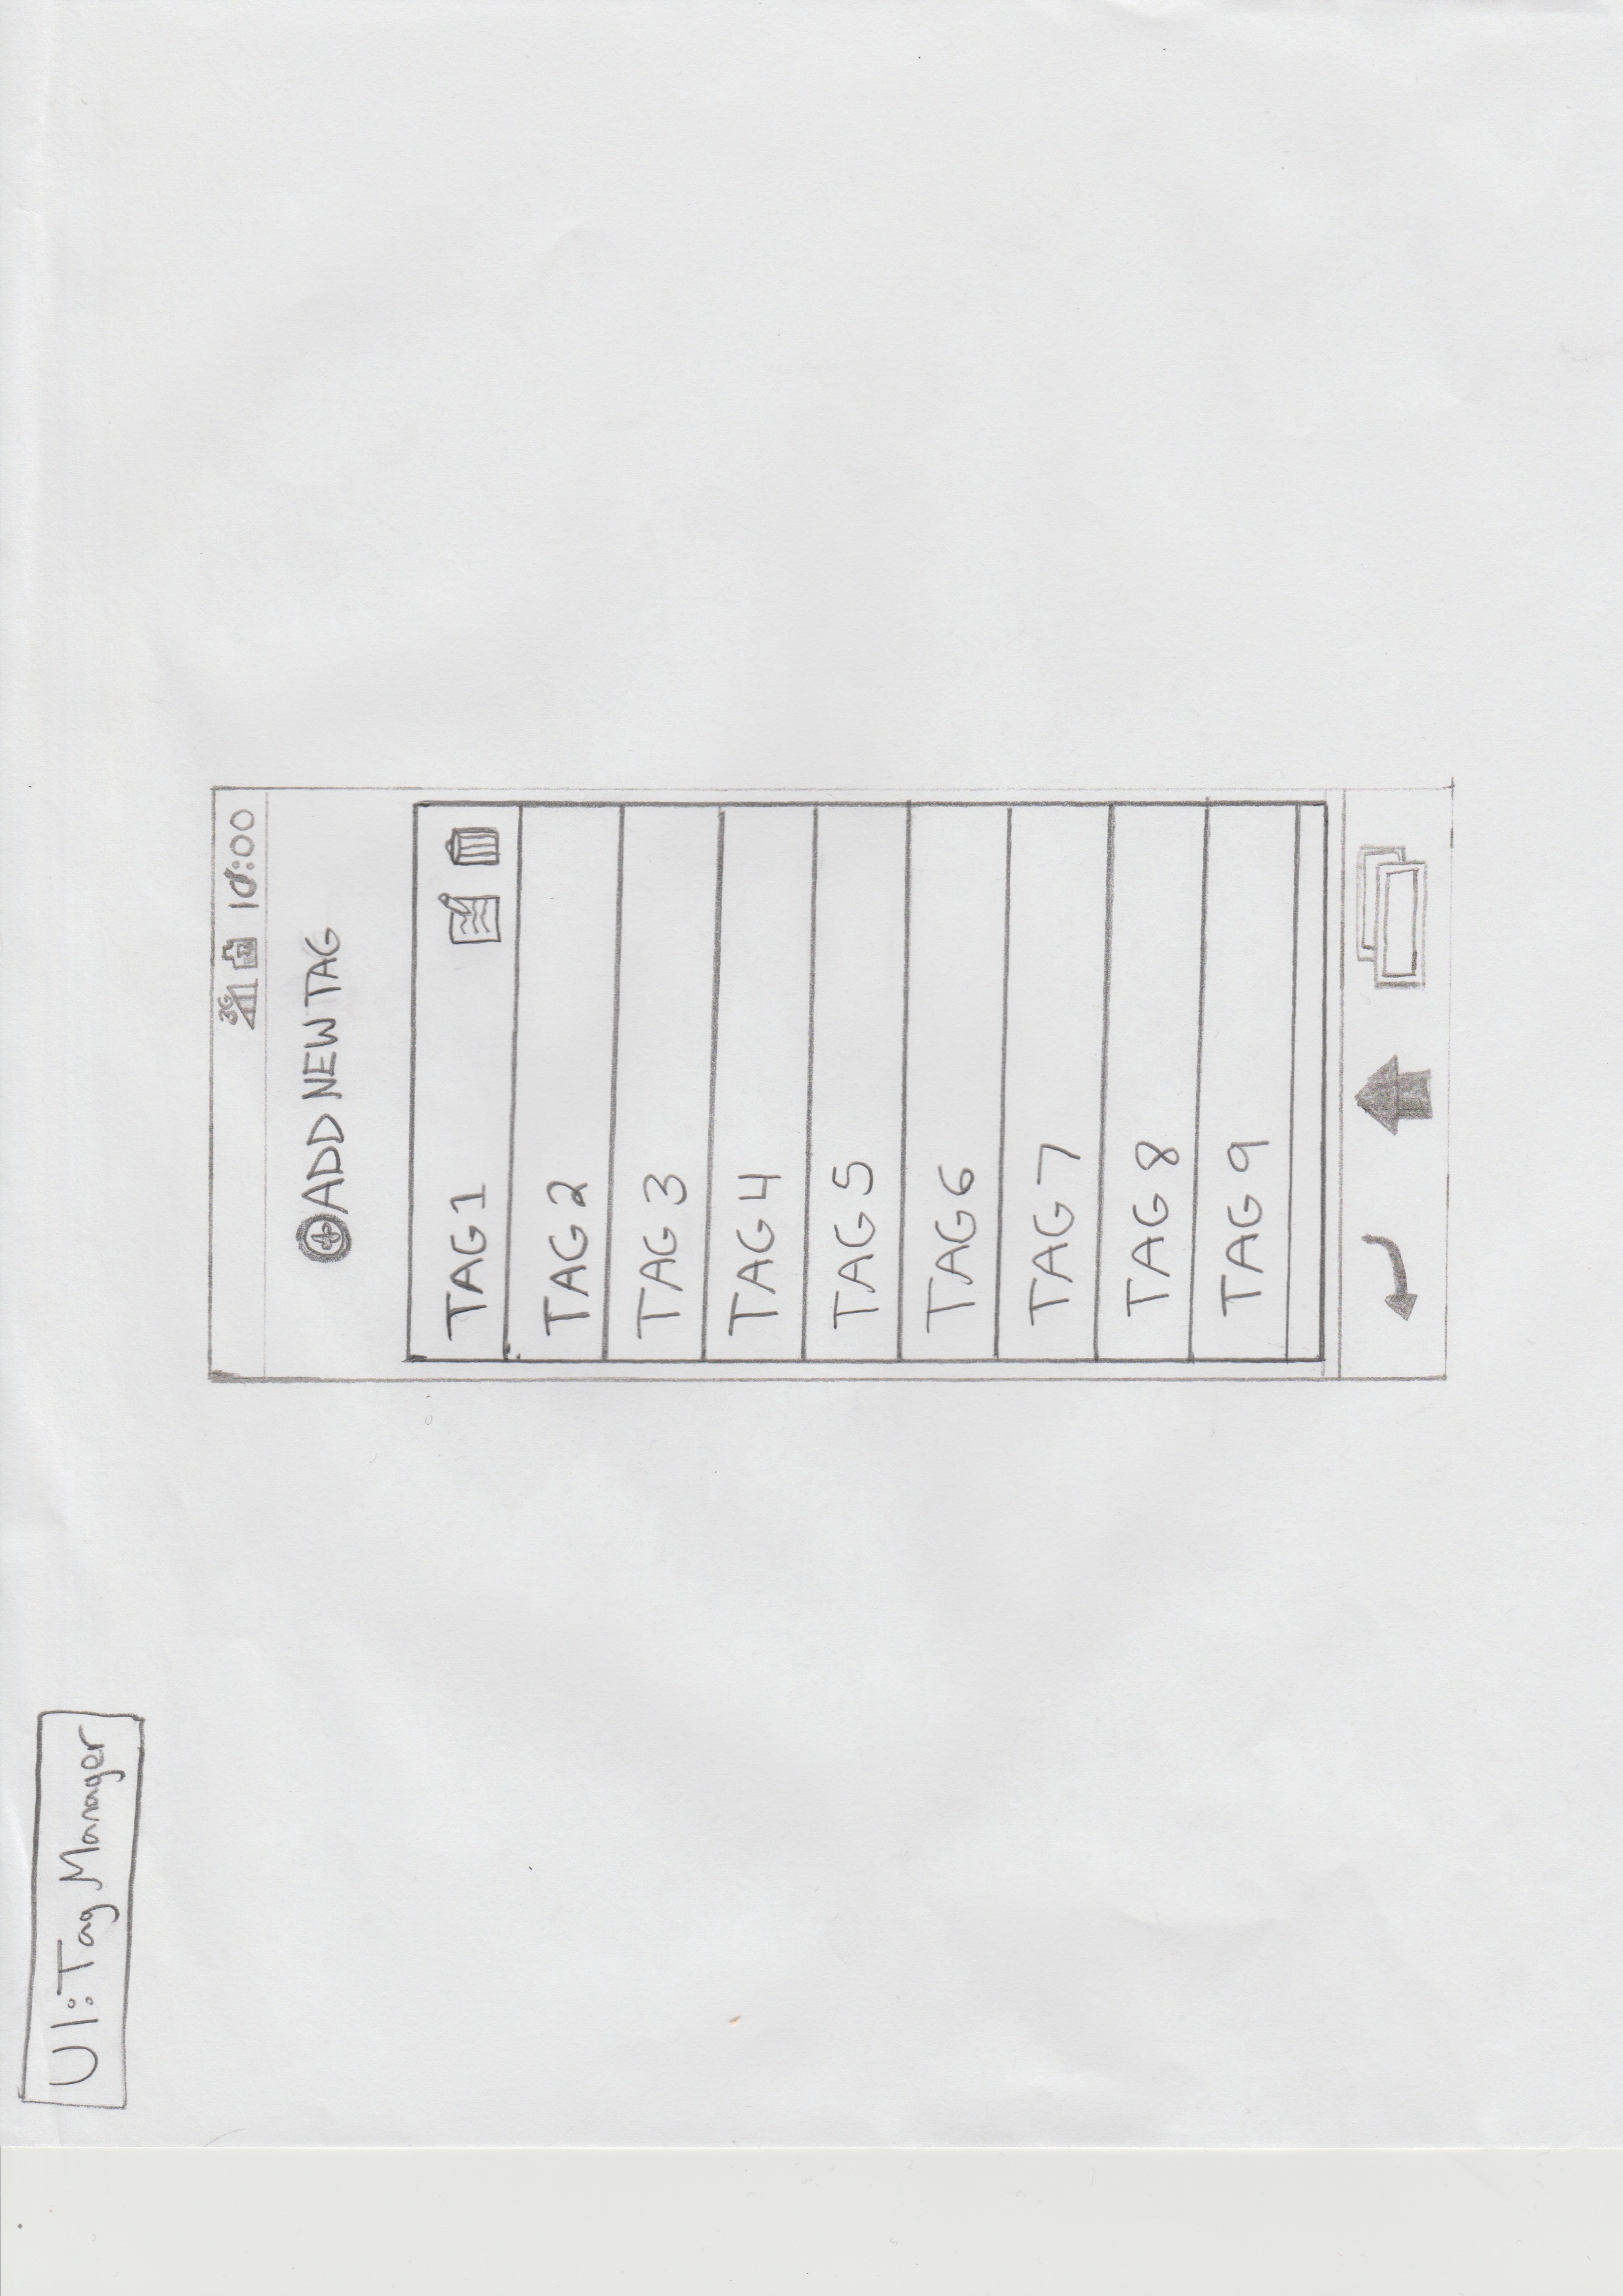 UI: Tag Manager
3G 10:00
ADD NEW TAG
TAG 1
TAG 2
TAG 3
TAG 4
TAG 5
TAG 6
TAG 7
TAG 8
TAG 9